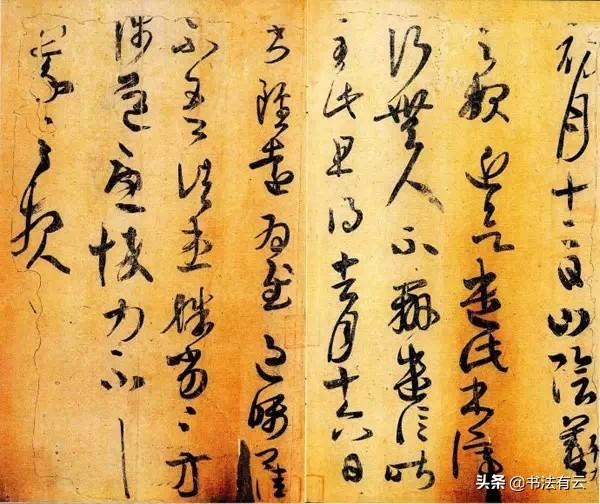 初月十二日山陰羲
之報近欲遣此書停
行無人不辦遣信昨
至此且得去月十六日
書雖遠為慰過囑
不吾諸患殊劣殊劣方
涉道憂悴力不具
羲之報
头条 @书法有云